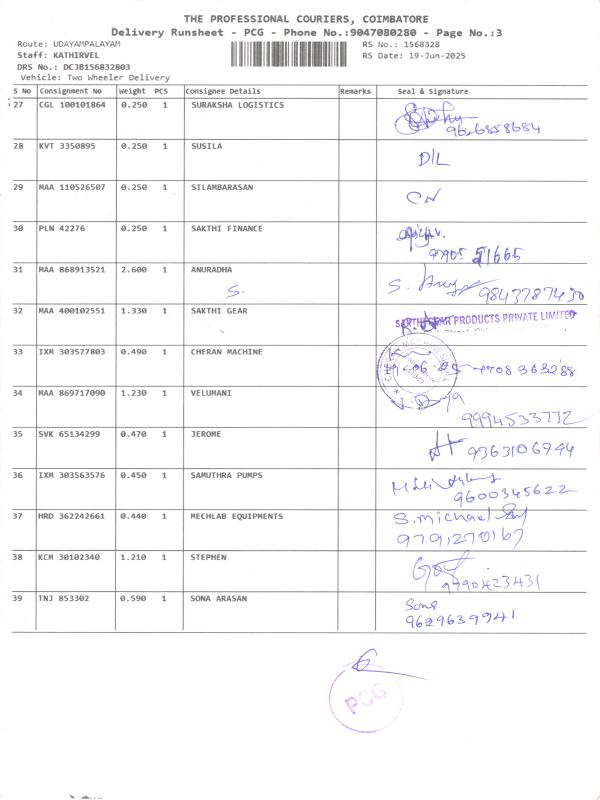 THE PROFESSIONAL COURIERS, COIMBATORE
Delivery Runsheet - PCG - Phone No.:9047080280 - Page No.:3
Route: UDAYAMPALAYAM RS No.: 1568328
Staff: KATHIRVEL RS Date: 19-Jun-2025
DRS No.: DCJB156832803
Vehicle: Two Wheeler Delivery
S No Consignment No Weight PCS Consignee Details Remarks Seal & Signature
27 CGL 100101864 0.250 1 SURAKSHA LOGISTICS
9626858684
28 KVT 3350895 0.250 1 SUSILA
D/L
29 MAA 110526507 0.250 1 SILAMBARASAN
CN
30 PLN 42276 0.250 1 SAKTHI FINANCE
31 MAA 868913521 2.600 1 ANURADHA
S. S. 9843787430
32 MAA 400102551 1.330 1 SAKTHI GEAR
SAKTHI GEAR PRODUCTS PRIVATE LIMITED
33 IXM 303577803 0.490 1 CHERAN MACHINE
34 MAA 869717090 1.230 1 VELUMANI
9994533772
35 SVK 65134299 0.470 1 JEROME
9363106744
36 IXM 303563576 0.450 1 SAMUTHRA PUMPS
9600345622
37 HRD 362242661 0.440 1 MECHLAB EQUIPMENTS
S. michael
9791270167
38 KCM 30102340 1.210 1 STEPHEN
9790423431
39 TNJ 853302 0.590 1 SONA ARASAN
Sona
9629639941
PCG